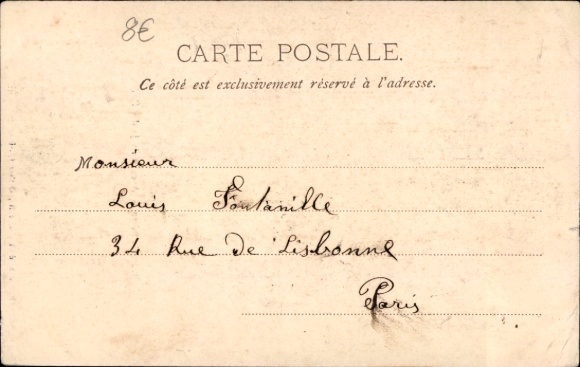 8€
CARTE POSTALE.
Ce côté est exclusivement réservé à l'adresse.
Monsieur
Louis Fontanille
34 Rue De Lisbonne
Paris